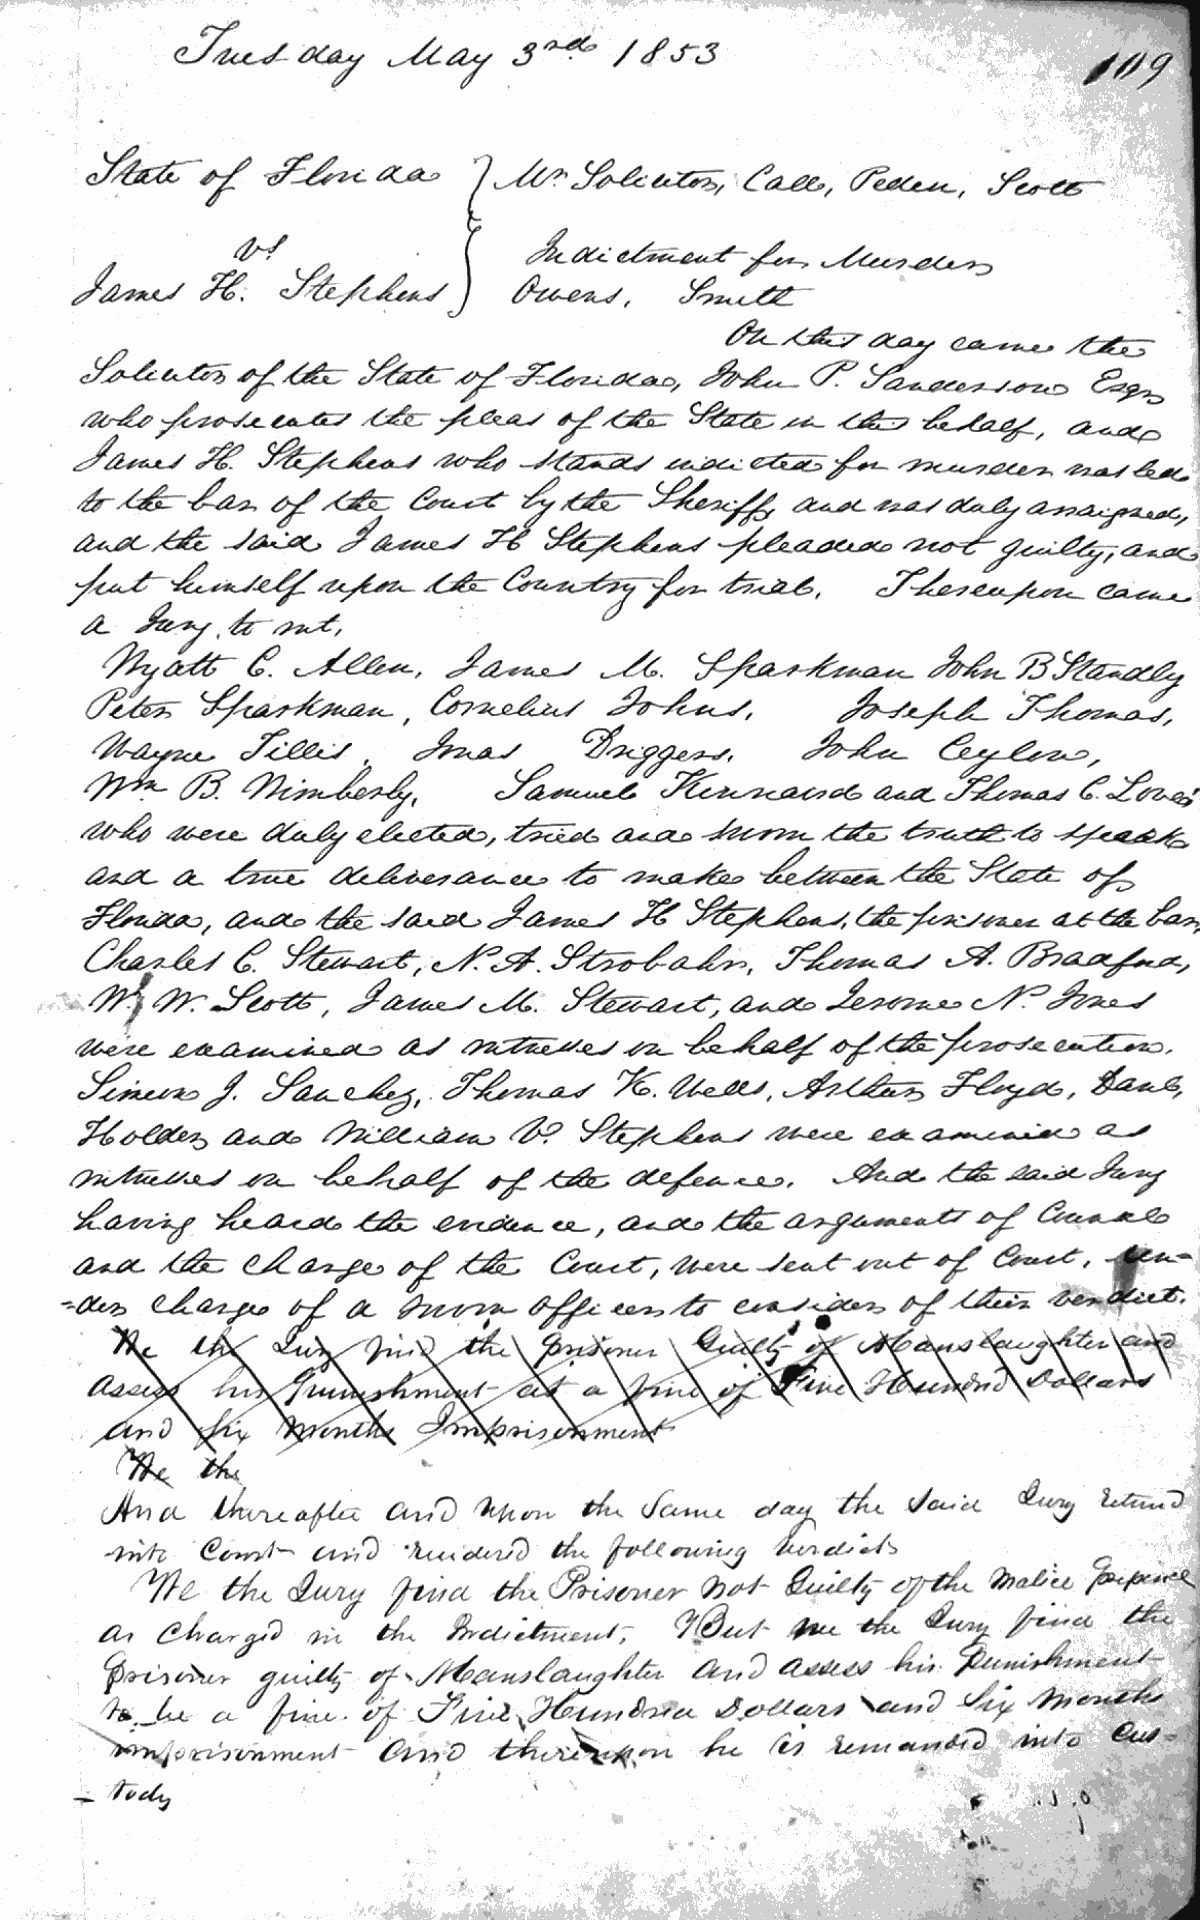 Tuesday May 3rd 1853
109
State of Florida } Mr Solicitor, Call, Peden, Scott
vs Indictment for Murder
James H. Stephens } Owens, Smith
On this day came the
Solicitor of the State of Florida, John P. Sanderson Esqr
who prosecutes the pleas of the State in this behalf, and
James H. Stephens who stands indicted for murder was led
to the bar of the Court by the Sheriff, and was duly arraigned,
and the said James H Stephens pleaded not guilty, and
put himself upon the Country for trial. Thereupon came
a Jury, to wit,
Wyatt C. Allen, James M. Sparkman John B Standly
Peter Sparkman, Cornelius Johns, Joseph Thomas,
Wayne Tillis, Jonas Driggers, John Ceylon,
Wm B. Wimberly, Samuel Kinnaird and Thomas C. Love
who were duly elected, tried and sworn the truth to speak
and a true deliverance to make between the State of
Florida, and the said James H Stephens, the prisoner at the bar,
Charles C. Stewart, N. A. Strobahr, Thomas A. Bradford,
W. W. Scott, James M. Stewart, and Jerome N. Jones
were examined as witnesses on behalf of the prosecution.
Simeon J. Sanchez, Thomas K. Wells, Arthur Floyd, Danl,
Holder and William V. Stephens were examined as
witnesses on behalf of the defence. And the said Jury
having heard the evidence, and the arguments of Counsel
and the charge of the Court, were sent out of Court, un-
=der charge of a sworn officer to consider of their verdict.
We the Jury find the prisoner Guilty of Manslaughter and
assess his punishment at a fine of Five Hundred Dollars
and Six Months Imprisonment
We the
And thereafter and upon the Same day the said Jury returnd
into Court and rendered the following Verdict
We the Jury find the Prisoner not Guilty of the Malice prepence
as charged in the Indictment, But we the Jury find the
prisoner guilty of Manslaughter and assess his Punishment
to be a fine of Five Hundred Dollars and Six Months
imprisonment and thereupon he is remanded into cus-
- tody